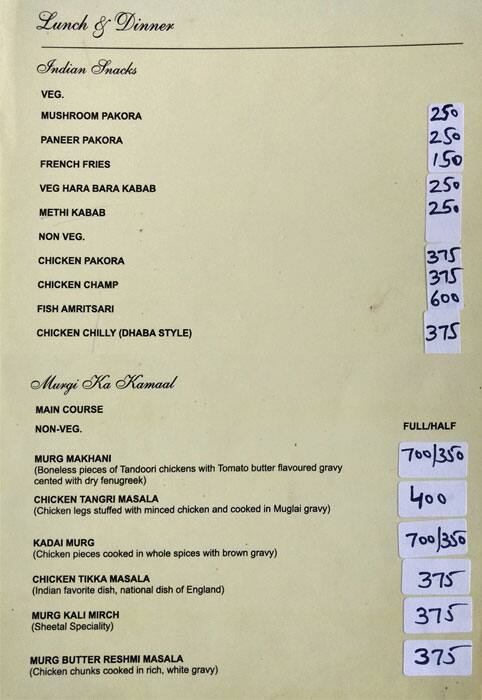 Lunch & Dinner
Indian Snacks
VEG.
MUSHROOM PAKORA 250
PANEER PAKORA 250
FRENCH FRIES 150
VEG HARA BARA KABAB 250
METHI KABAB 250
NON VEG.
CHICKEN PAKORA 375
CHICKEN CHAMP 375
FISH AMRITSARI 600
CHICKEN CHILLY (DHABA STYLE) 375
Murgi Ka Kamaal
MAIN COURSE
NON-VEG. FULL/HALF
MURG MAKHANI 700/350
(Boneless pieces of Tandoori chickens with Tomato butter flavoured gravy
cented with dry fenugreek)
CHICKEN TANGRI MASALA 400
(Chicken legs stuffed with minced chicken and cooked in Muglai gravy)
KADAI MURG 700/350
(Chicken pieces cooked in whole spices with brown gravy)
CHICKEN TIKKA MASALA 375
(Indian favorite dish, national dish of England)
MURG KALI MIRCH 375
(Sheetal Speciality)
MURG BUTTER RESHMI MASALA 375
(Chicken chunks cooked in rich, white gravy)